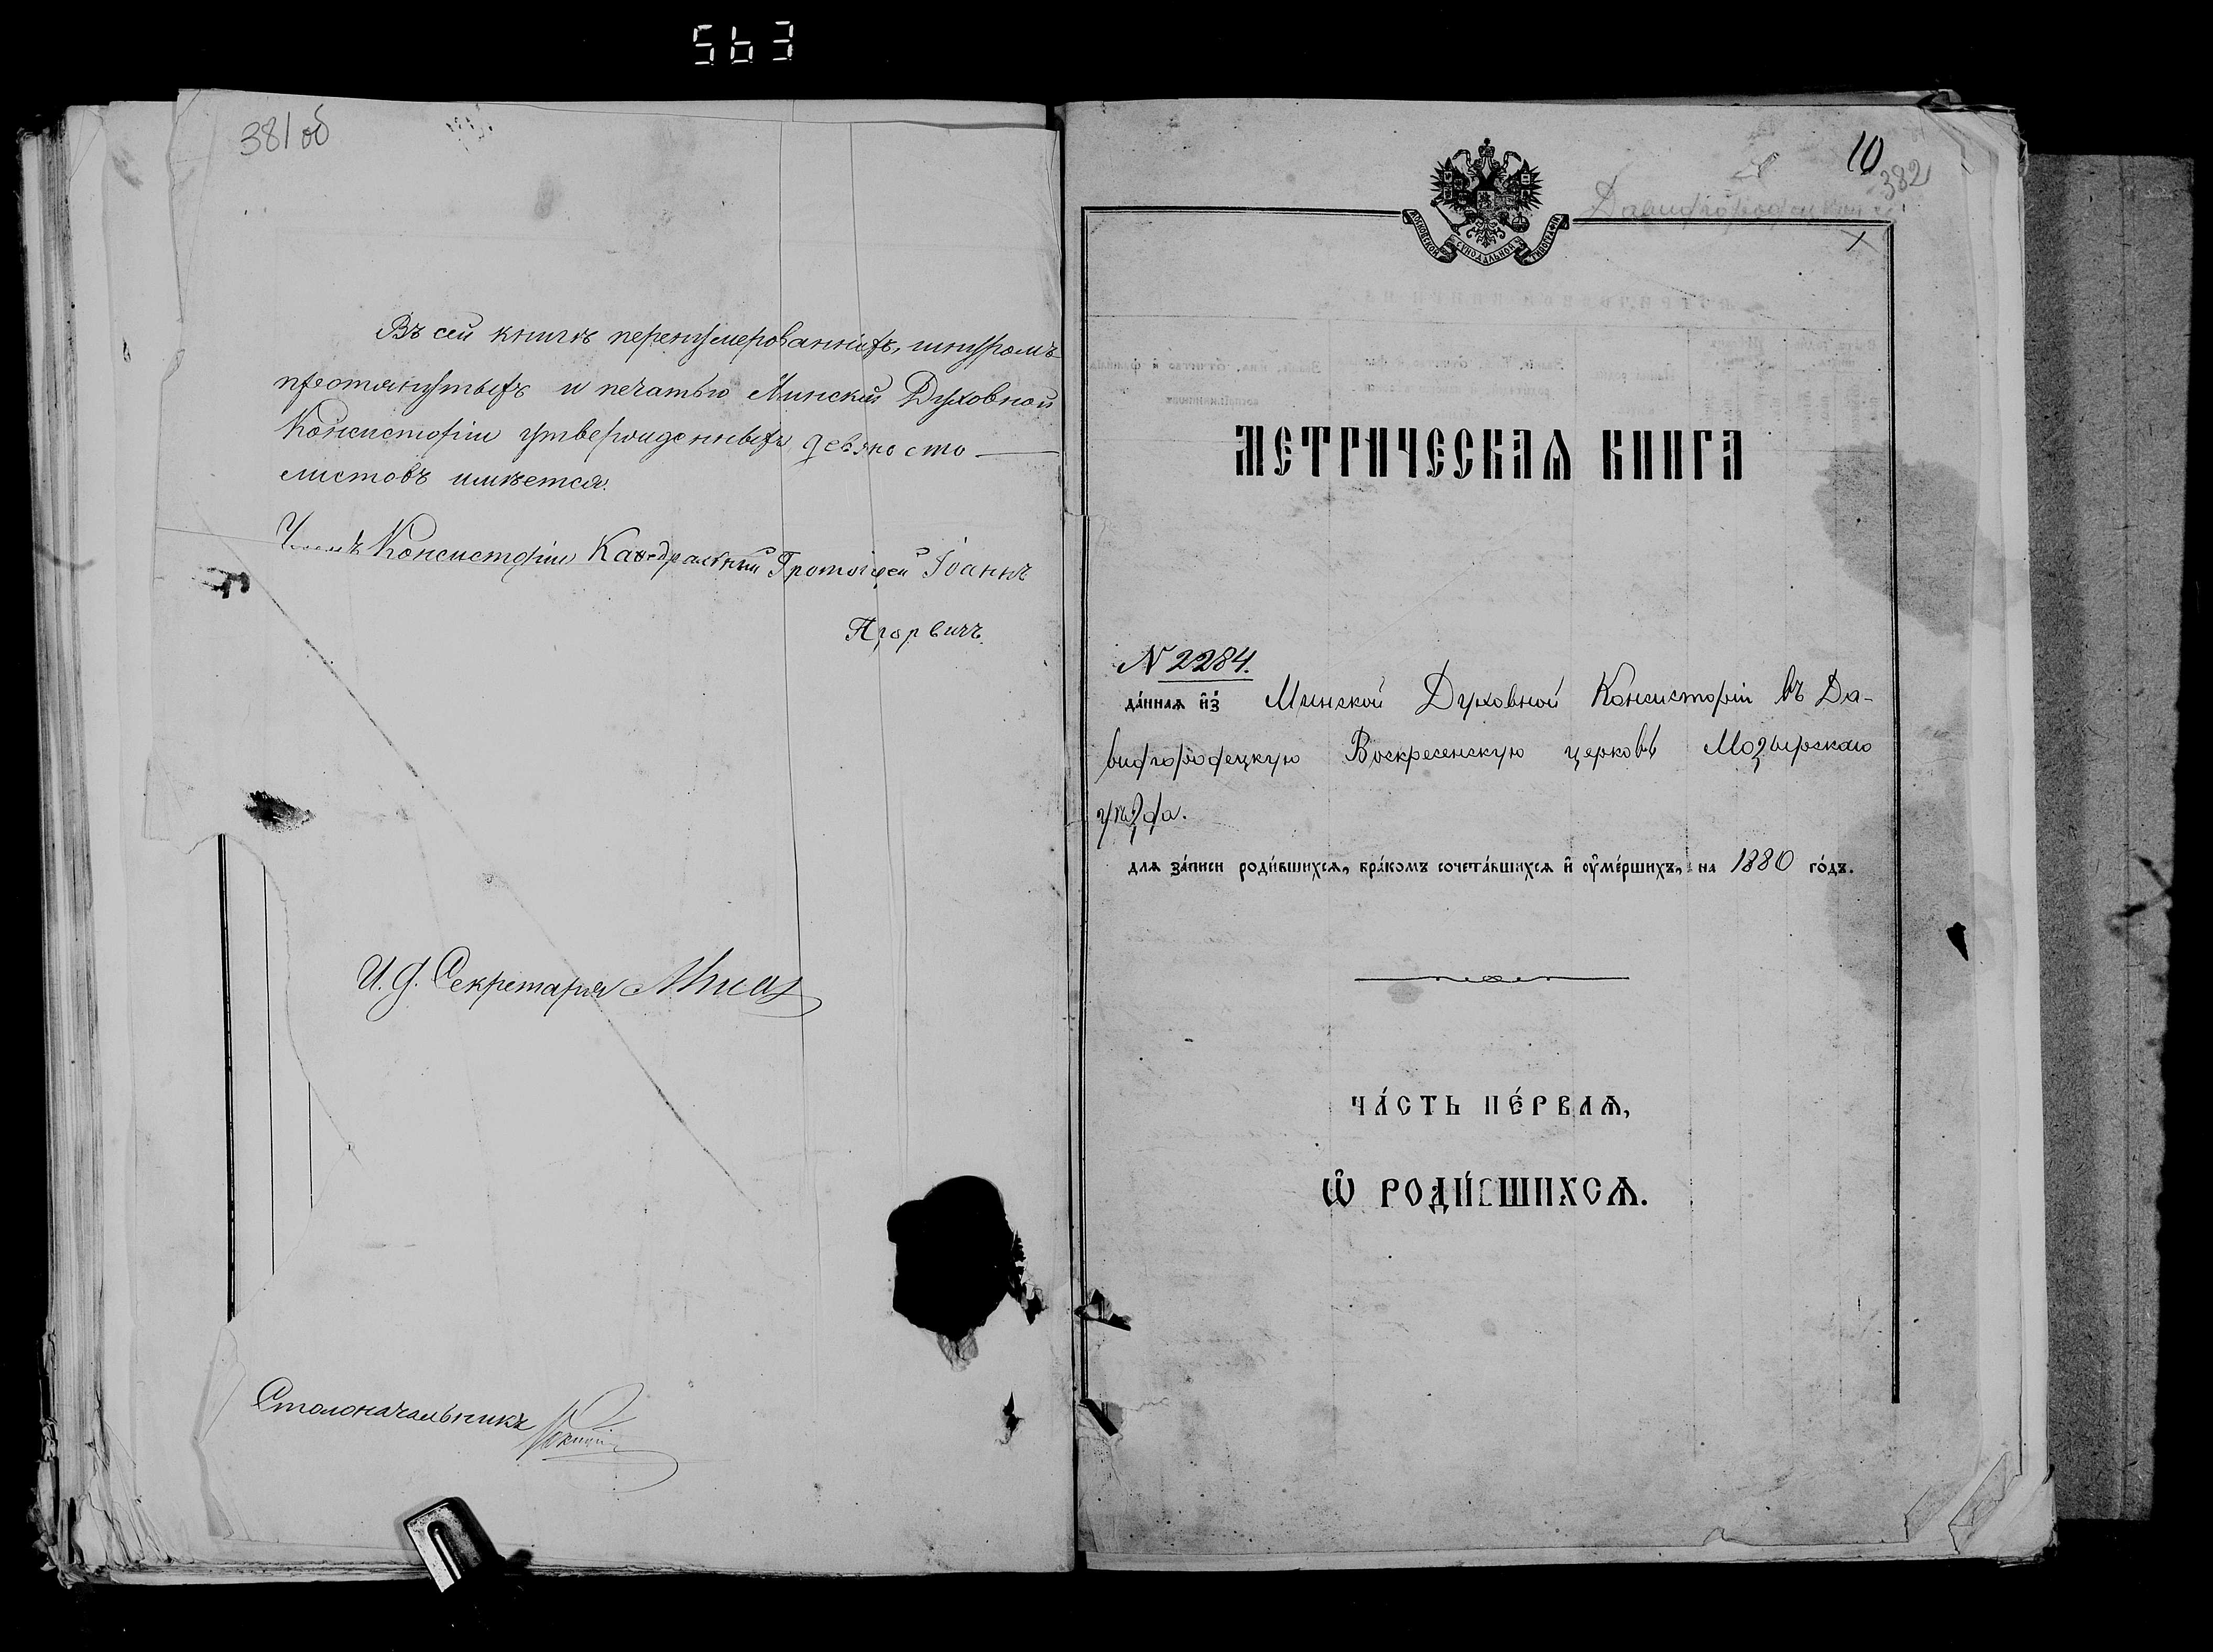 563
381 об
Въ сей книгѣ перенумерованныхъ, шнуромъ
протянутыхъ и печатью Минской Духовной
Консисторіи утвержденныхъ девяносто
листовъ имѣется.
Членъ Консисторіи Каѳедральный Протоіерей Іоаннъ
И. д. Секретаря
Столоначальникъ
10
382
МОСКОВСКОЙ СѴНОДАЛЬНОЙ ТИПОГРАФІИ
МЕТРИЧЕСКАѦ КНИГА
N 2284.
да́ннаѧ и҆з̾ Минской Духовной Консисторіи въ Да-
видгородецкую Воскресенскую церковь Мозырскаго
уѣзда.
для за́писи роди́вшихсѧ, бра́комъ сочета́вшихсѧ и҆ ᲂу҆ме́ршихъ, на 1880 го́дъ.
ЧА́СТЬ ПЕ́РВАѦ,
Ѡ҆ РОДИ́ВШИХСѦ.